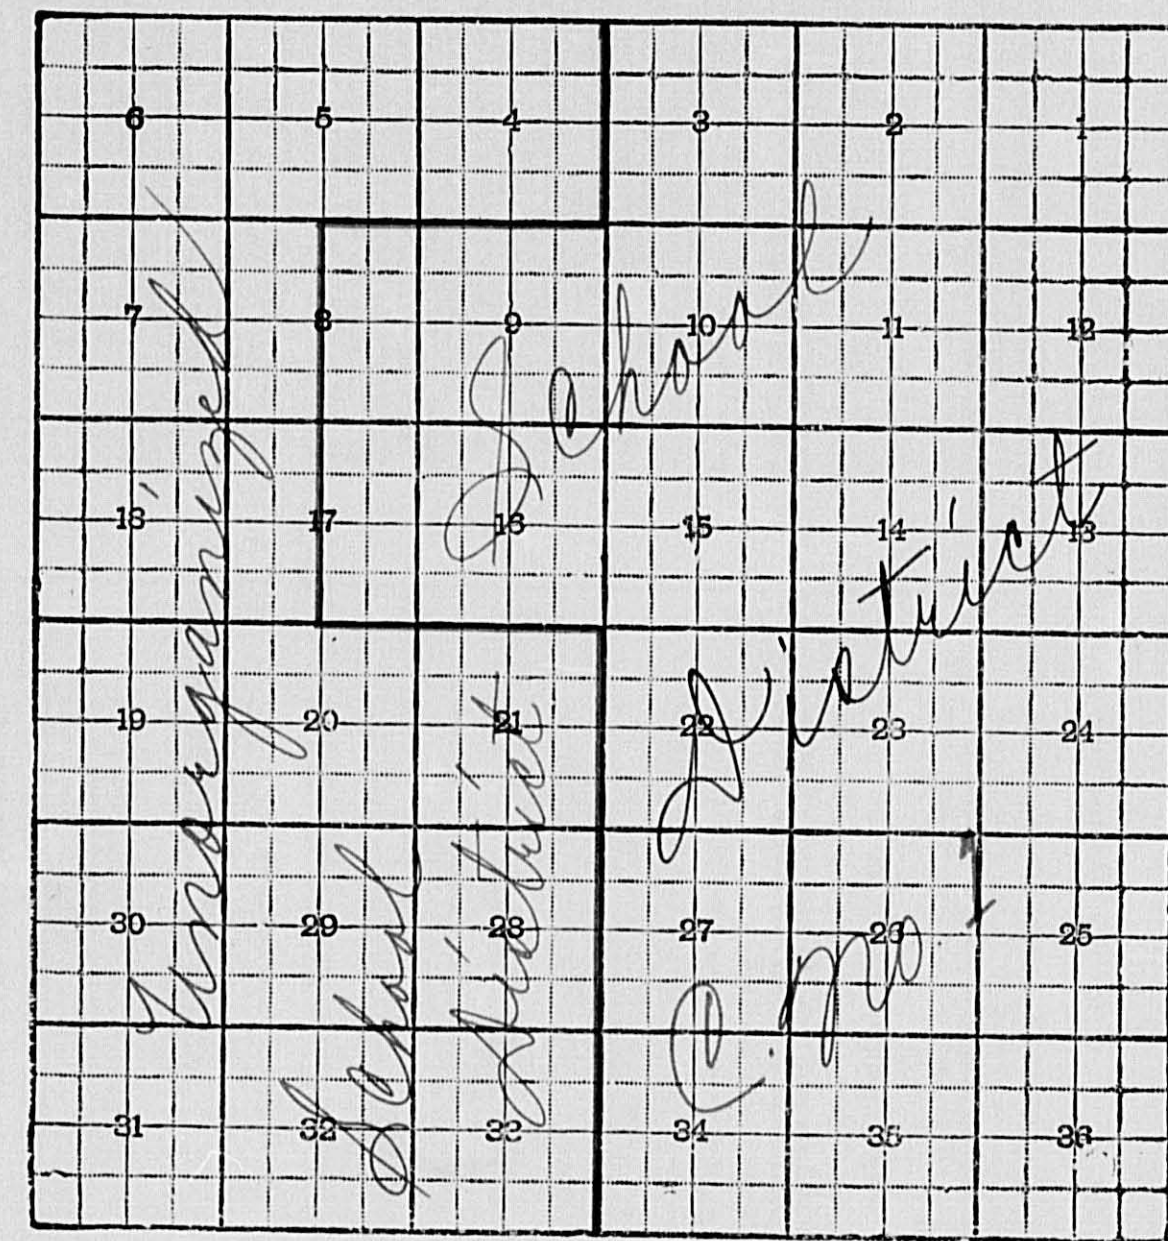 6 5 4 3 2 1
7 8 9 10 11 12
18 17 16 15 14 13
19 20 21 22 23 24
30 29 28 27 26 25
31 32 33 34 35 36
Unorganized
School
District
School
District
No 1